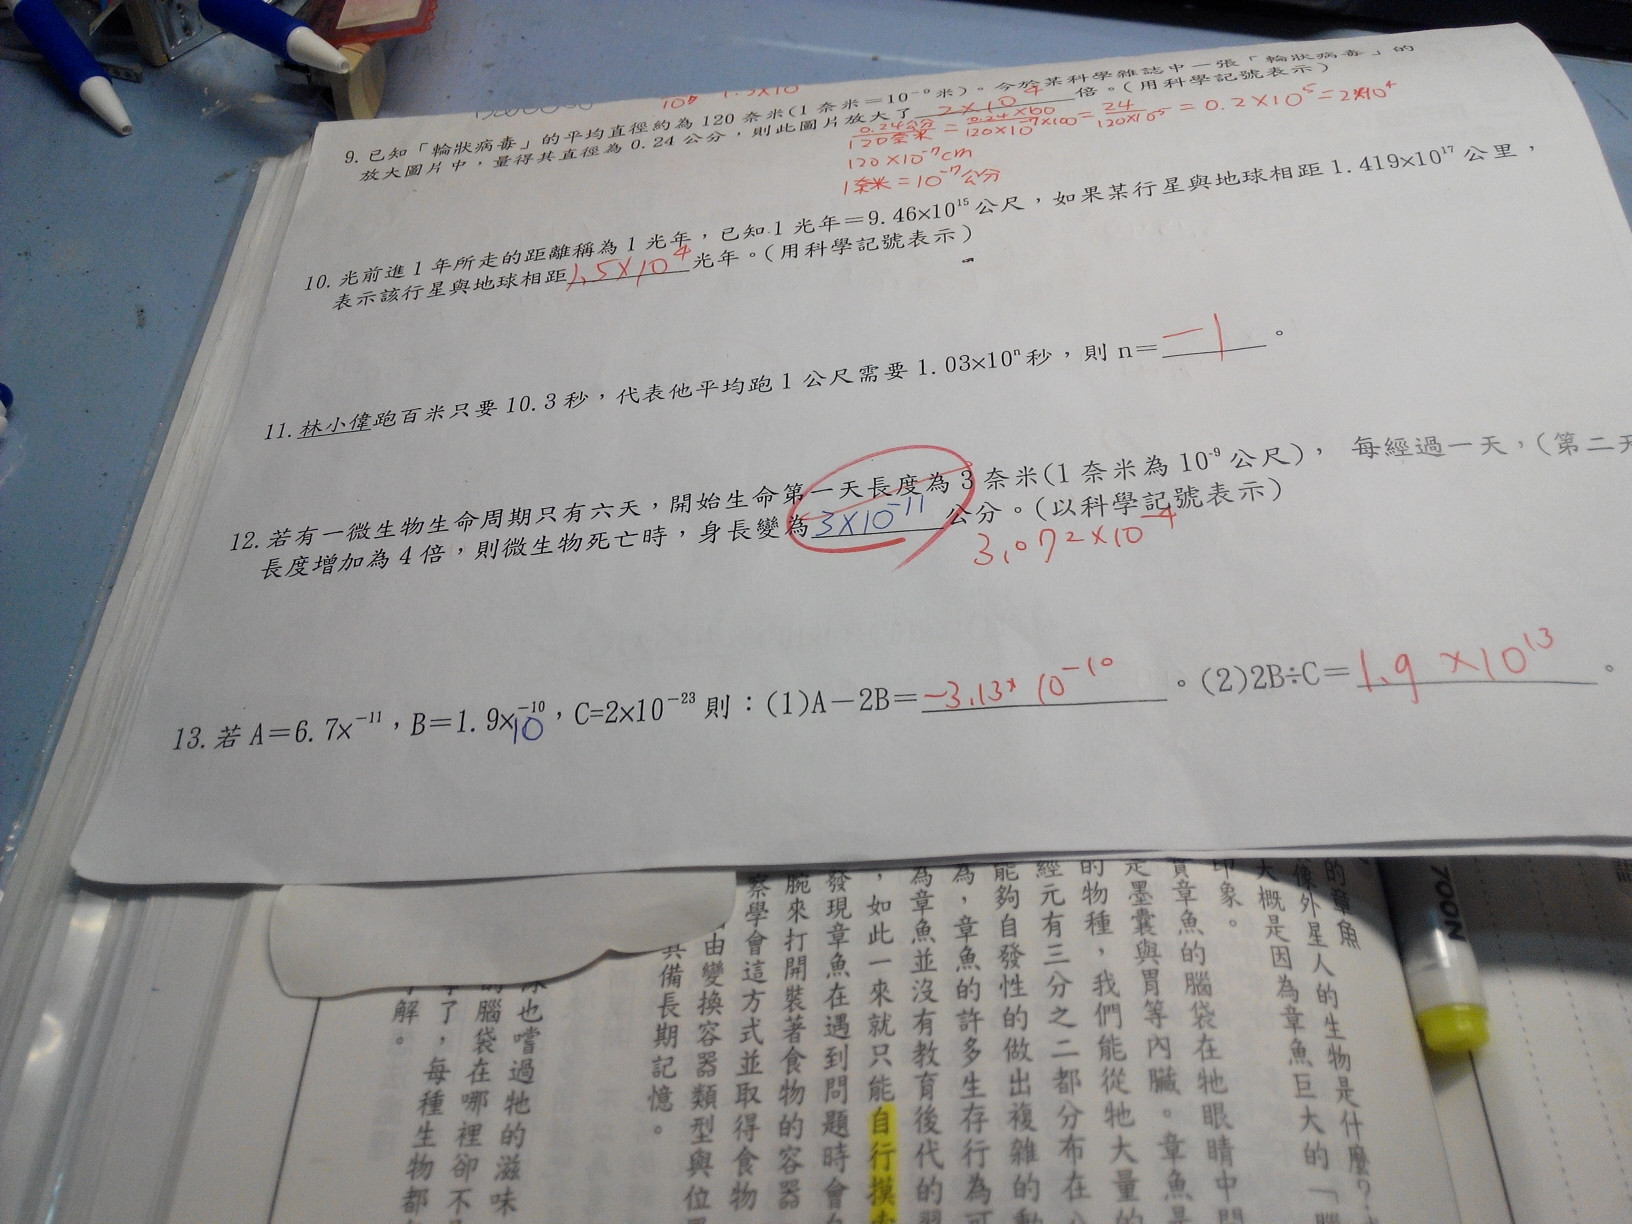 9. 已知「輪狀病毒」的平均直徑約為 120 奈米(1 奈米=10⁻⁹米)。今於某科學雜誌中一張「輪狀病毒」的
放大圖片中，量得其直徑為 0.24 公分，則此圖片放大了 2×10⁴ 倍。(用科學記號表示)
0.24公分/120奈米 = 0.24×100/120×10⁻⁷×100 = 24/120×10⁻⁵ = 0.2×10⁵=2×10⁴
120×10⁻⁷cm
1奈米=10⁻⁷公分
10. 光前進 1 年所走的距離稱為 1 光年，已知 1 光年=9.46×10¹⁵公尺，如果某行星與地球相距 1.419×10¹⁷公里，
表示該行星與地球相距 1.5×10⁴ 光年。(用科學記號表示)
11. 林小偉跑百米只要 10.3 秒，代表他平均跑 1 公尺需要 1.03×10ⁿ秒，則 n= -1 。
12. 若有一微生物生命周期只有六天，開始生命第一天長度為 3 奈米(1 奈米為 10⁻⁹公尺)， 每經過一天，(第二天
長度增加為 4 倍，則微生物死亡時，身長變為 3×10⁻¹¹ 公分。(以科學記號表示)
3.072×10⁻⁴
13. 若 A=6.7x⁻¹¹，B=1.9x10⁻¹⁰，C=2×10⁻²³ 則：(1)A－2B= -3.13×10⁻¹⁰ 。(2)2B÷C= 1.9×10¹³ 。
700N
的章魚
像外星人的生物是什麼?
大概是因為章魚巨大的「腦
印象。
章魚的腦袋在牠眼睛中間
是墨囊與胃等內臟。章魚是
的物種，我們能從牠大量的
經元有三分之二都分布在
能夠自發性的做出複雜的動
為，章魚的許多生存行為可
為章魚並沒有教育後代的習
，如此一來就只能自行摸索
發現章魚在遇到問題時會
腕來打開裝著食物的容器
察學會這方式並取得食物
由變換容器類型與位
具備長期記憶。
也嚐過牠的滋味
的腦袋在哪裡卻不
了，每種生物都
解。